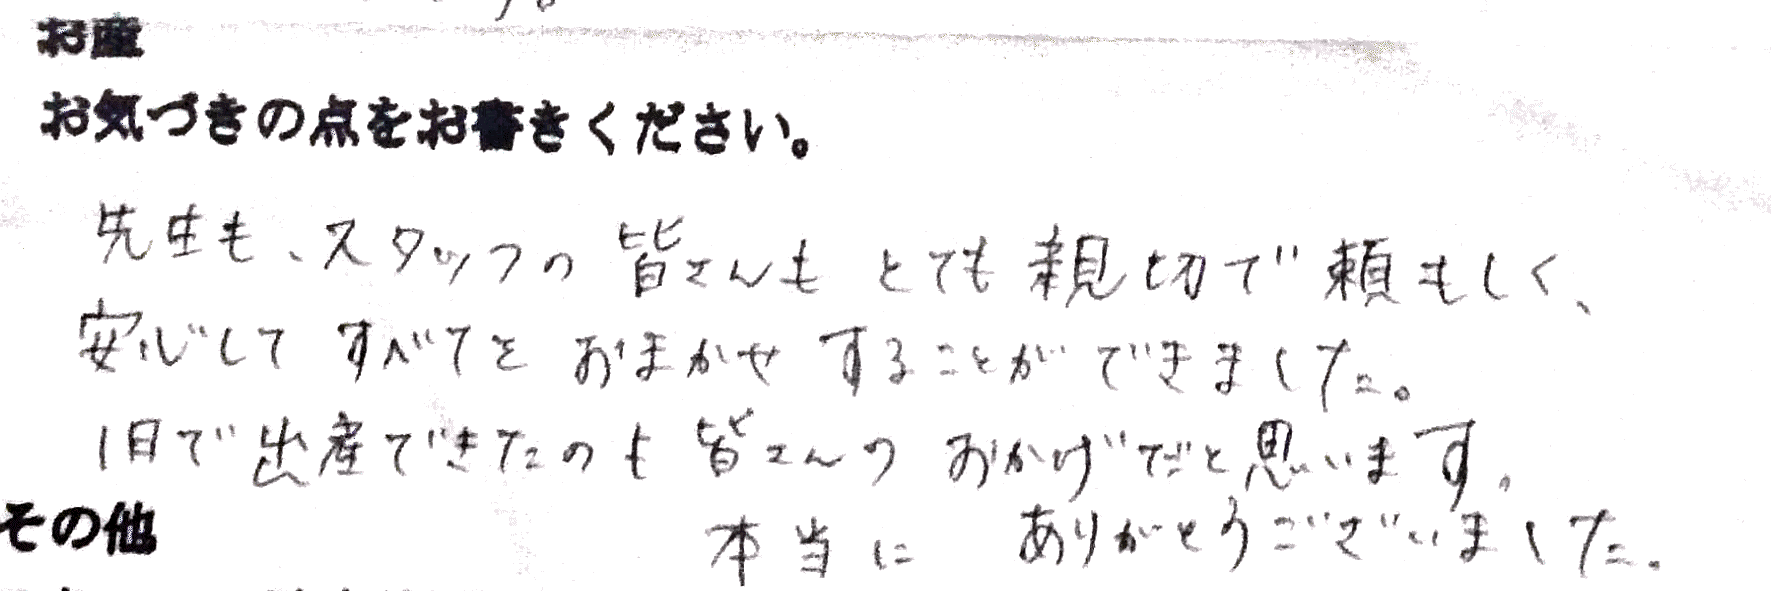 お産
お気づきの点をお書きください。
先生も、スタッフの皆さんもとても親切で頼もしく、
安心してすべてをおまかせすることができました。
1日で出産できたのも皆さんのおかげだと思います。
その他
本当に ありがとうございました。